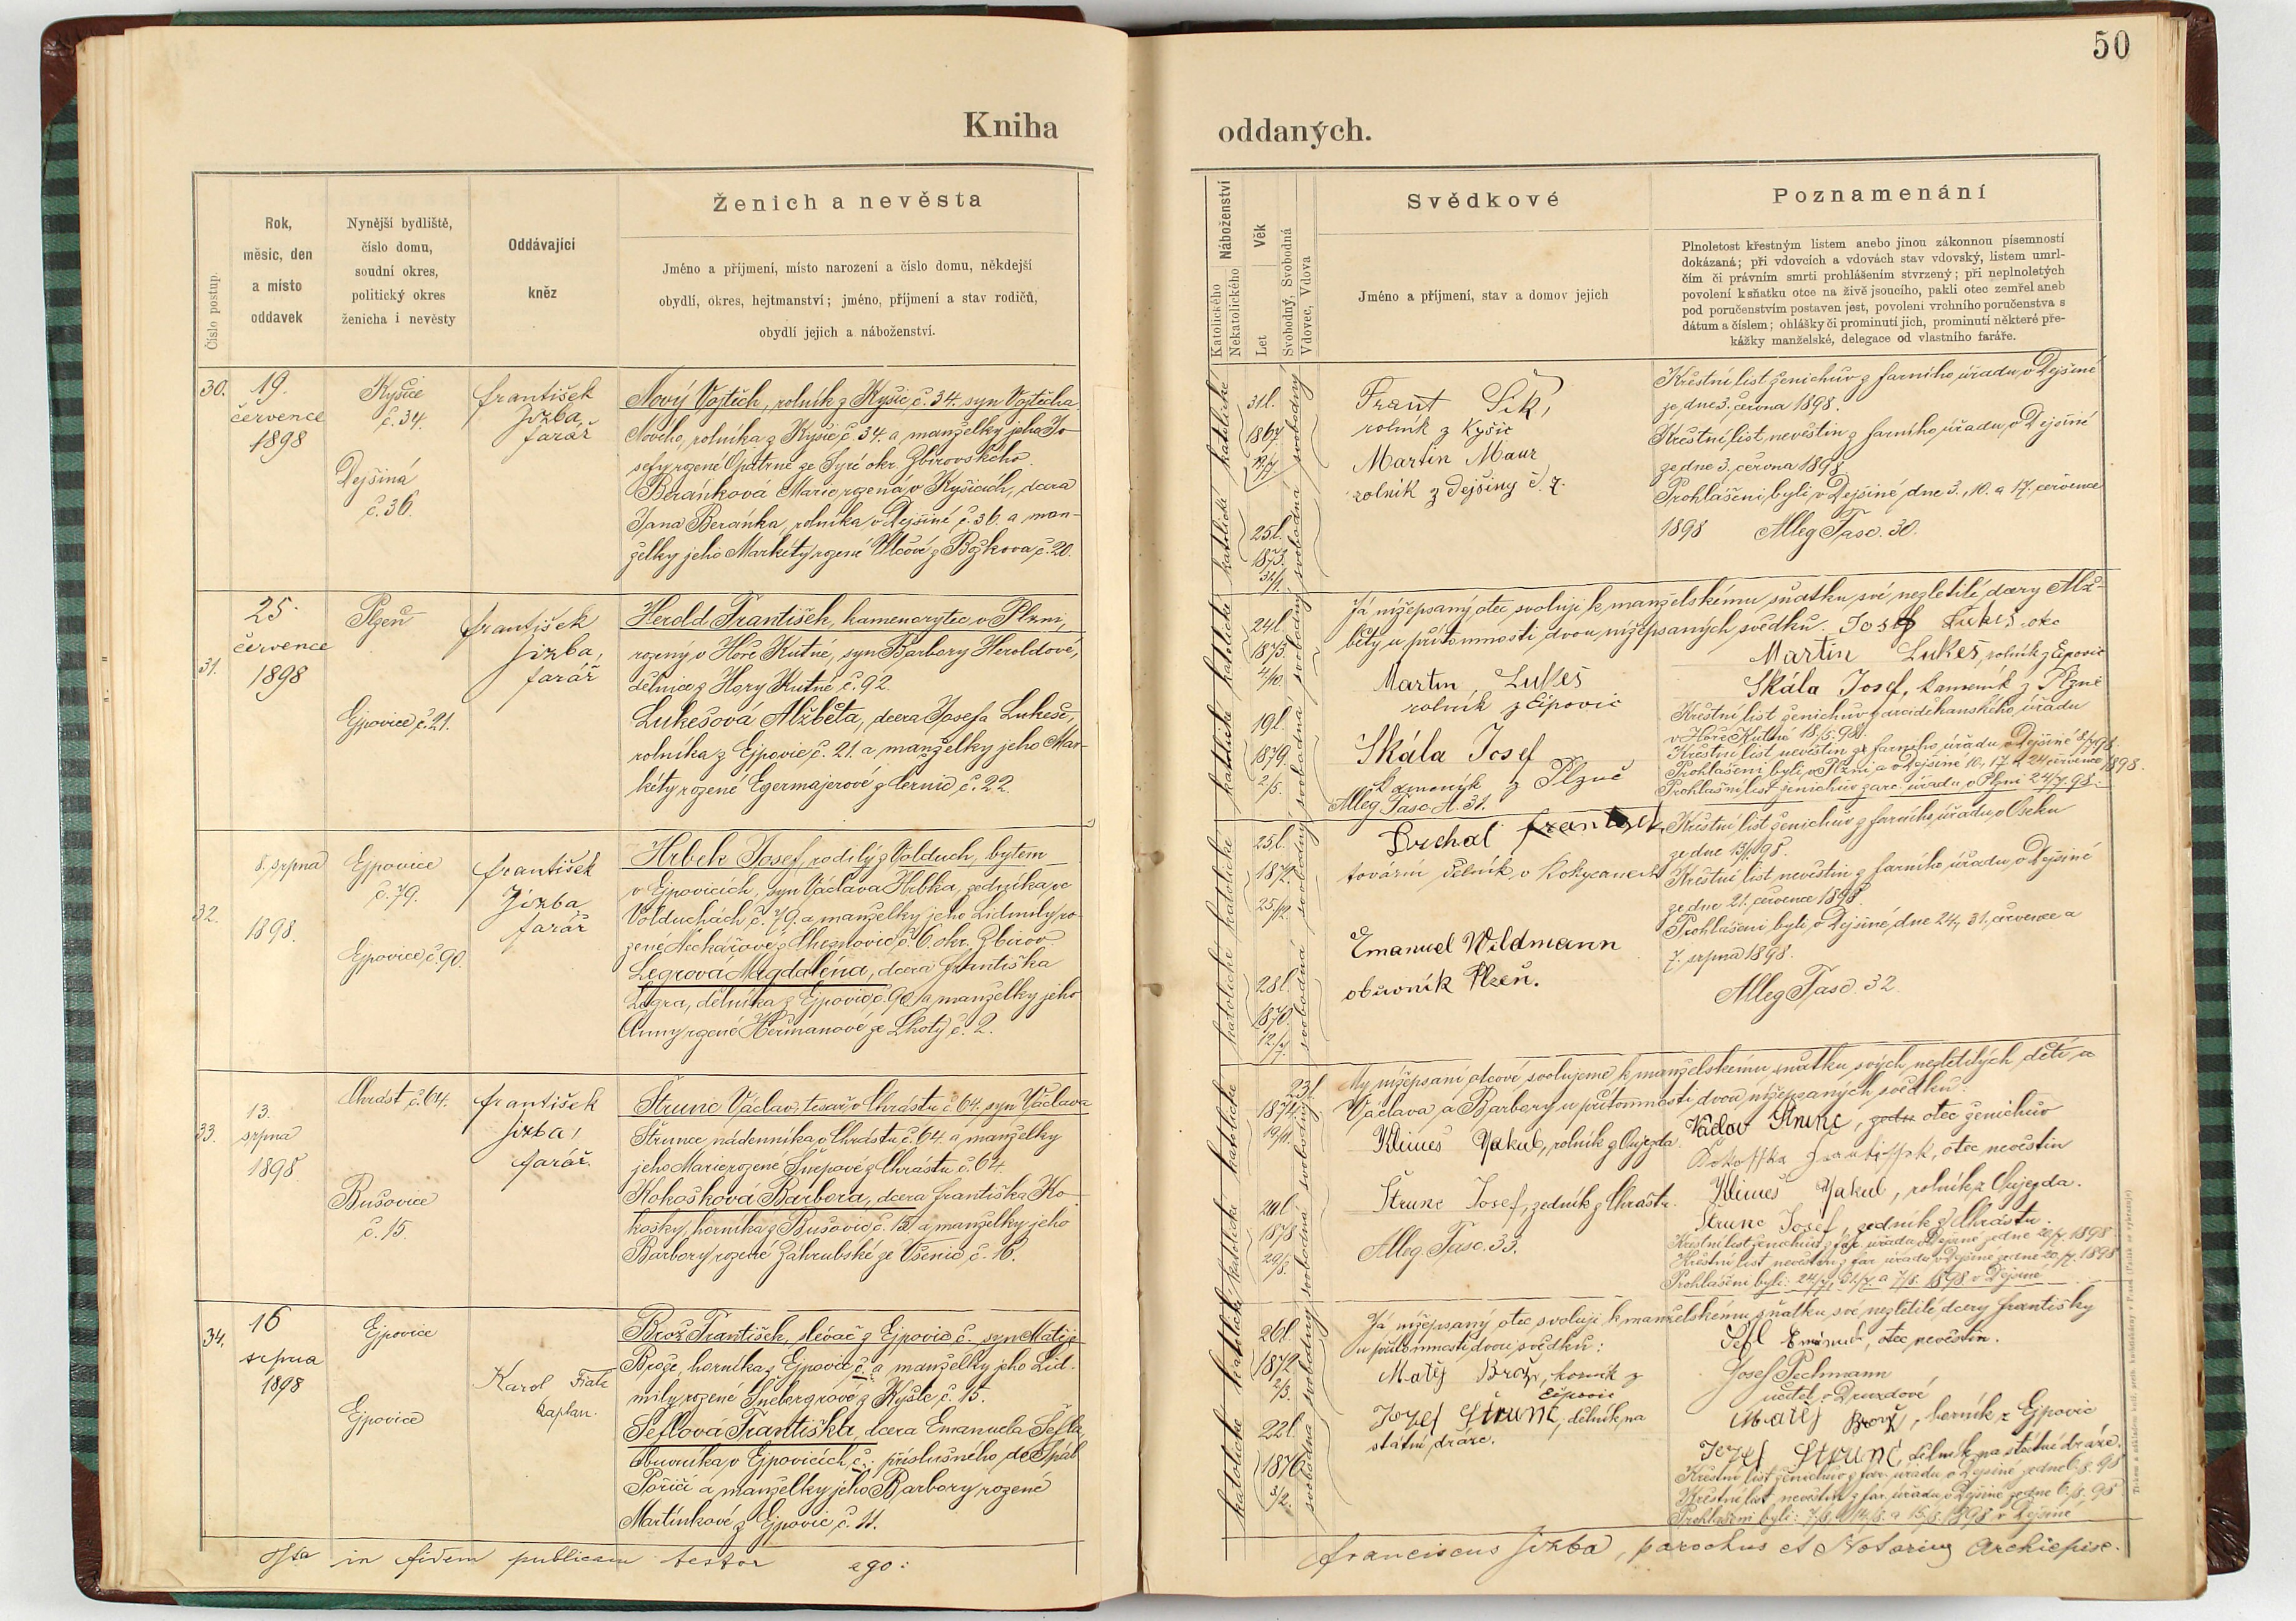 50
Kniha
oddaných.
Číslo postup.
Rok,
měsíc, den
a místo
oddavek
Nynější bydliště,
číslo domu,
soudní okres,
politický okres
ženicha i nevěsty
Oddávající
kněz
Ženich a nevěsta
Jméno a příjmení, místo narození a číslo domu, někdejší
obydlí, okres, hejtmanství; jméno, příjmení a stav rodičů,
obydlí jejich a náboženství.
30.
19.
července
1898
Kyšice
č. 34.
Dejšina
č. 36.
František
Jizba,
farář
Nový Vojtěch, rolník z Kyšic, č. 34. syn Vojtěcha
Nového, rolníka z Kyšic č. 34. a manželky jeho Jo-
sefy rozené Opatrné ze Syré okr. Zbirovského.
Beránková Marie, rozená v Kyšicích, dcera
Jana Beránka, rolníka v Dejšině č. 36. a man-
želky jeho Markéty rozené Vlčové z Božkova, č. 20.
31.
25.
července
1898
Plzeň
Ejpovice, č. 21.
František
Jizba,
farář
Herold František, kamenorytec v Plzni,
rozený v Hoře Kutné, syn Barbory Heroldové,
dělnice z Hory Kutné, č. 92.
Lukešová Alžběta, dcera Josefa Lukeše,
rolníka z Ejpovic, č. 21. a manželky jeho Mar-
kéty rozené Egermajerové z Černic, č. 22.
32.
8. srpna
1898.
Ejpovice
č. 79.
Ejpovice, č. 90.
František
Jizba
farář
Hrbek Josef, rodilý z Volduch, bytem
v Ejpovicích, syn Václava Hrbka, zedníka, ve
Volduchách č. 79. a manželky jeho Lidmily ro-
zené č. 6. okr. Zbirov.
Legrova Magdaléna, dcera Františka
Legra, dělníka z Ejpovic, č. 90. a manželky jeho
Anny rozené Heřmanové ze Lhoty č. 2.
33.
13.
srpna
1898.
Chrást, č. 64.
Bušovice
č. 15.
František
Jizba,
farář.
Štrunc Václav, tesař v Chrástu č. 64. syn Václava
Štrunce, nádenníka v Chrástu č. 64. a manželky
jeho Marie rozené Šnepové z Chrástu č. 64.
Kohošková Barbora, dcera Františka Ko-
košky, horníka z Bušovic č. 15. a manželky jeho
Barbory rozené Záhrubské ze Všenic č. 16.
34.
16
srpna
1898
Ejpovice
Ejpovice
Karel Fiale
kaplan.
Brož František, slévač z Ejpovic č. syn Matěje
Brože, horníka z Ejpovic č. a manželky jeho Lid-
mily rozené Šnebergrové z Kyšic č. 15.
Šeflová Františka, dcera Emanuela Šefla,
obuvníka v Ejpovicích č. příslušného do Spál.
Poříčí a manželky jeho Barbory rozené
Martínkové z Ejpovic č. 11.
Ista in fidem publicam testor ego:
Náboženství
Katolického
Nekatolického
Věk
Let
Svobodný, Svobodná
Vdovec, Vdova
Svědkové
Jméno a příjmení, stav a domov jejich
Poznamenání
Plnoletost křestným listem anebo jinou zákonnou písemností
dokázaná; při vdovcích a vdovách stav vdovský, listem umrl-
čím či právním smrti prohlášením stvrzený; při neplnoletých
povolení k sňatku otce na živě jsoucího, pakli otec zemřel aneb
pod poručenstvím postaven jest, povolení vrchního poručenstva s
dátum a číslem; ohlášky či prominutí jich, prominutí některé pře-
kážky manželské, delegace od vlastního faráře.
katolické
31 l.
1867
19/7.
svobodný
katolické
25 l.
1873.
31/1.
svobodná
Frant Šik,
rolník z Kyšic
Martin Maur
rolník z Dejšiny č. 7.
Křestní list ženichův z farního úřadu v Dejšině
ze dne 3. června 1898.
Křestní list nevěstin z farního úřadu v Dejšině
ze dne 3. června 1898
Prohlášeni byli v Dejšině dne 3., 10. a 17. července
1898 Alleg Fasc. 30.
Já nížepsaný otec svoluji k manželskému sňatku své nezletilé dcery Alž-
běty u přítomnosti dvou nížepsaných svědků. Josef Lukeš otec
Martin Lukeš, rolník z Ejpovic
Skála Josef, kameník z Plzně
katolické
24 l.
1873.
4/10.
svobodný
katolické
19 l.
1879.
2/5.
svobodná
Martin Lukeš
rolník z Ejpovic
Skála Josef
kameník z Plzně
Alleg Fasc. A. 31.
Křestní list ženichův z arciděkanského úřadu
v Hoře Kutné 18/5. 98.
Křestní list nevěstin ze farního úřadu v Dejšině 8/7 98.
Prohlášeni byli v Plzni a v Dejšině 10., 17. a 24. července 1898.
Prohlašní list ženichův z arc. úřadu v Plzni 24/7. 98.
katolické
25 l.
25/12.
svobodný
katolické
28 l.
1870.
12/7.
svobodná
František
tovární dělník v Rokycanech
Emanuel Wildmann
obuvník Plzeň.
Křestní list ženichův z farního úřadu v Oseku
ze dne 13/7. 98.
Křestní list nevěstin z farního úřadu v Dejšině
ze dne 21. července 1898.
Prohlášeni byli v Dejšině dne 24., 31. července a
7. srpna 1898.
Alleg Fasc. 32.
My nížepsaní otcové svolujeme k manželskému sňatku svých nezletilých dětí a
Václava a Barbory u přítomnosti dvou nížepsaných svědků:
katolické
23 l.
svobodný
katolické
20 l.
1878.
29/8.
svobodná
Klimeš Jakub, rolník z Oujezda
Štrunc Josef, zedník z Chrástu.
Alleg Fasc. 33.
Vaclav Štrunc, otec ženichův
Kokoffka Frantiffek, otec nevěstin
Klimeš Jakub, rolník z Oujezda.
Štrunc Josef, zedník z Chrástu.
Křestní list ženichův z far. úřadu v Dejšině ze dne 20/7. 1898
Křestní list nevěstin z far. úřadu v Dejšině ze dne 20/7. 1898
Prohlášeni byli: 24/7., 31/7. a 7/8. 1898 v Dejšině
Já nížepsaný otec svoluji k manželskému sňatku své nezletilé dcery Františky
u přítomnosti dvou svědků:
katolické
26 l.
1872
2/3.
svobodný
katolické
22 l.
1876
3/2.
svobodná
Matěj Brož, horník z
Ejpovic
Jozef Štrunc, dělník na
státní dráze.
Šefl Emanuel, otec nevěstin.
Josef Pechmann
učitel v Druzdově
Matěj Brož, horník z Ejpovic
Jozef Štrunc, dělník na státní dráze.
Křestní list ženichův z far. úřadu v Dejšině ze dne 6/8. 98
Křestní list nevěstin z far. úřadu v Dejšině ze dne 6/8. 98
Prohlášeni byli: 7/8., 14/8. a 15/8. 1898 v Dejšině
Franciscus Jizba, parochus et Notarius Archiepisc.